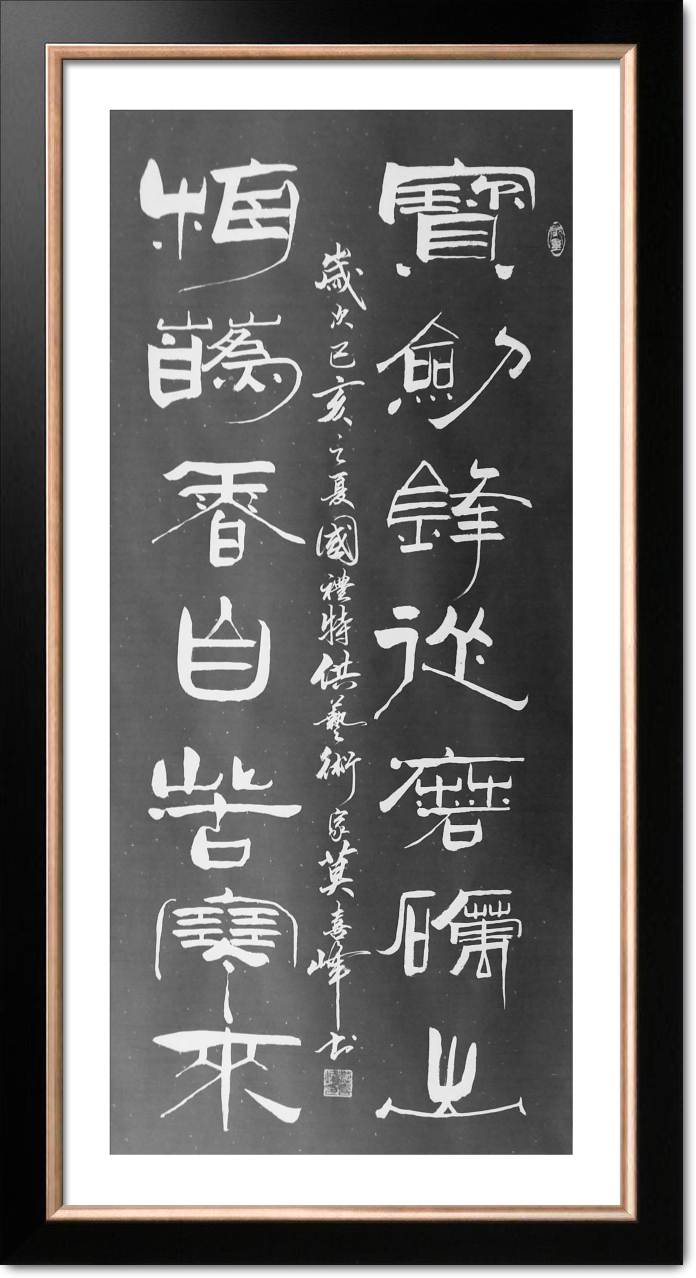 寶劍鋒從磨礪出
梅蘤香自苦寒來
歲次己亥之夏國禮特供藝術家莫喜峰书